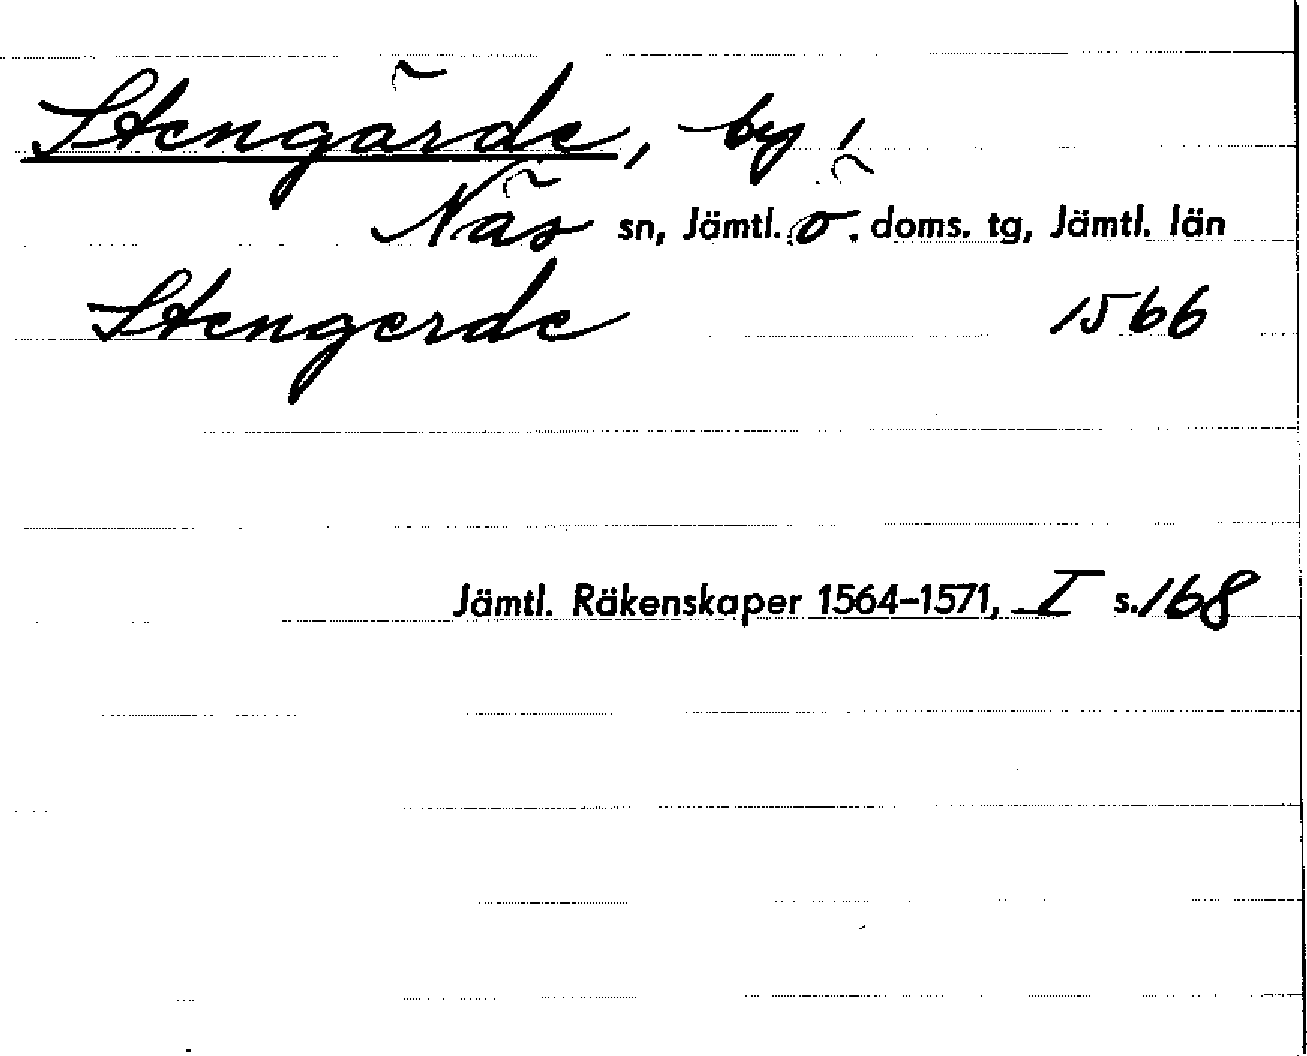 Stengärde, by,
Näs sn, Jämtl. ö. doms. tg, Jämtl. län
Stengerde 1566
Jämtl. Räkenskaper 1564-1571, I s. 168